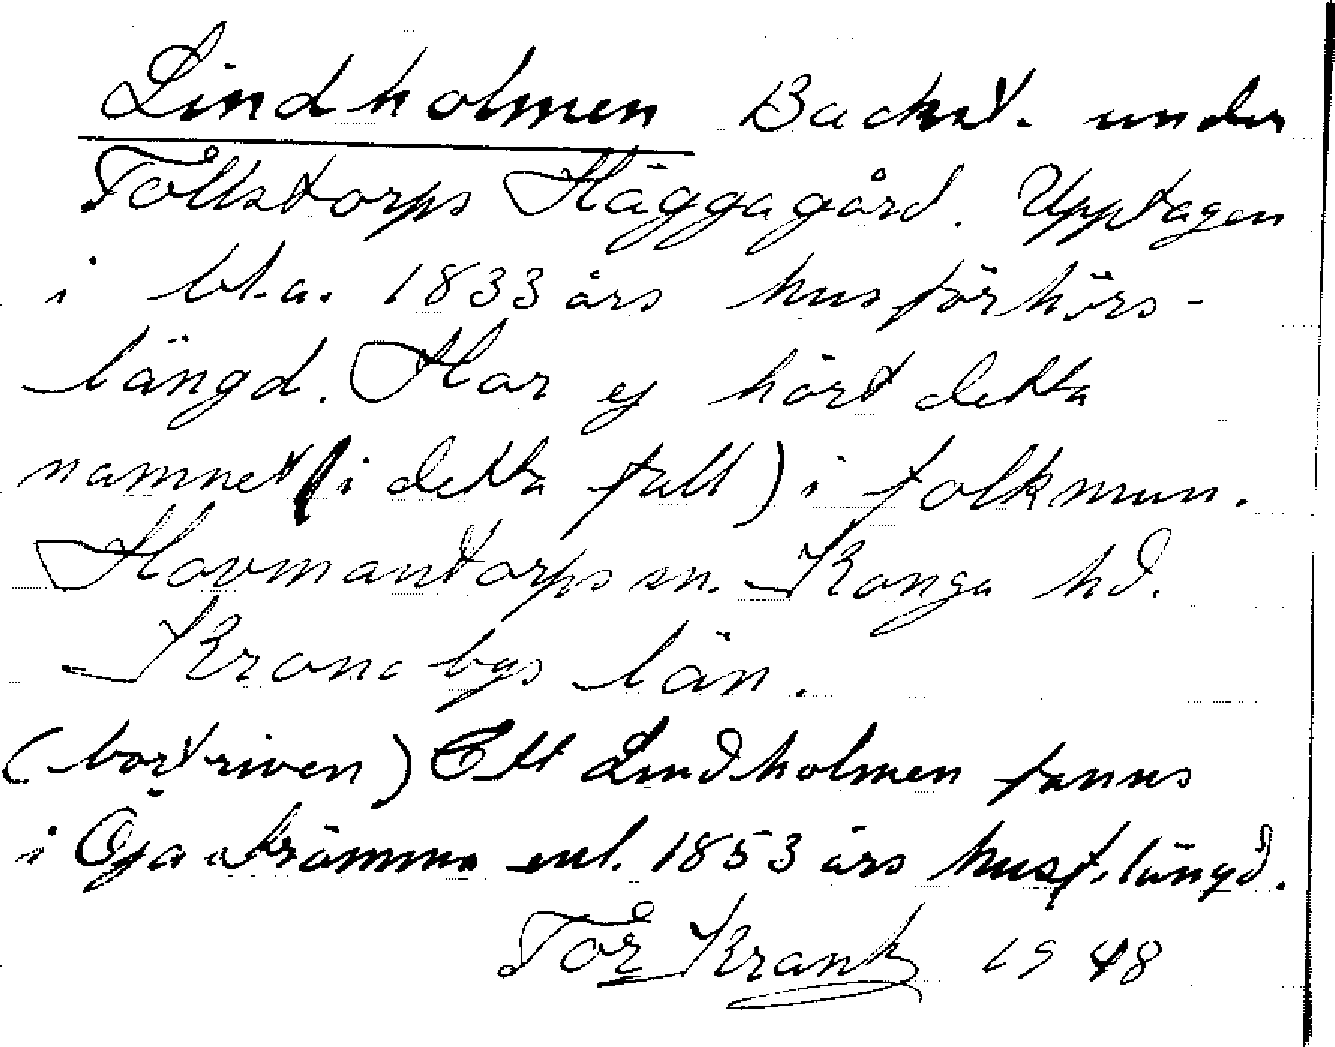 Lindholmen Backst. under
Tollstorps Häggagård. Upptagen
i bl.a. 1833 års husförhörs-
längd. Har ej hört detta
namnet (i detta fall) i folkmun.
Hovmantorps sn. Konga hd.
Kronobgs län.
(bortriven) Ett Lindholmen fanns
i Öja strömma enl. 1853 års husf.längd.
Tor Krank 1948